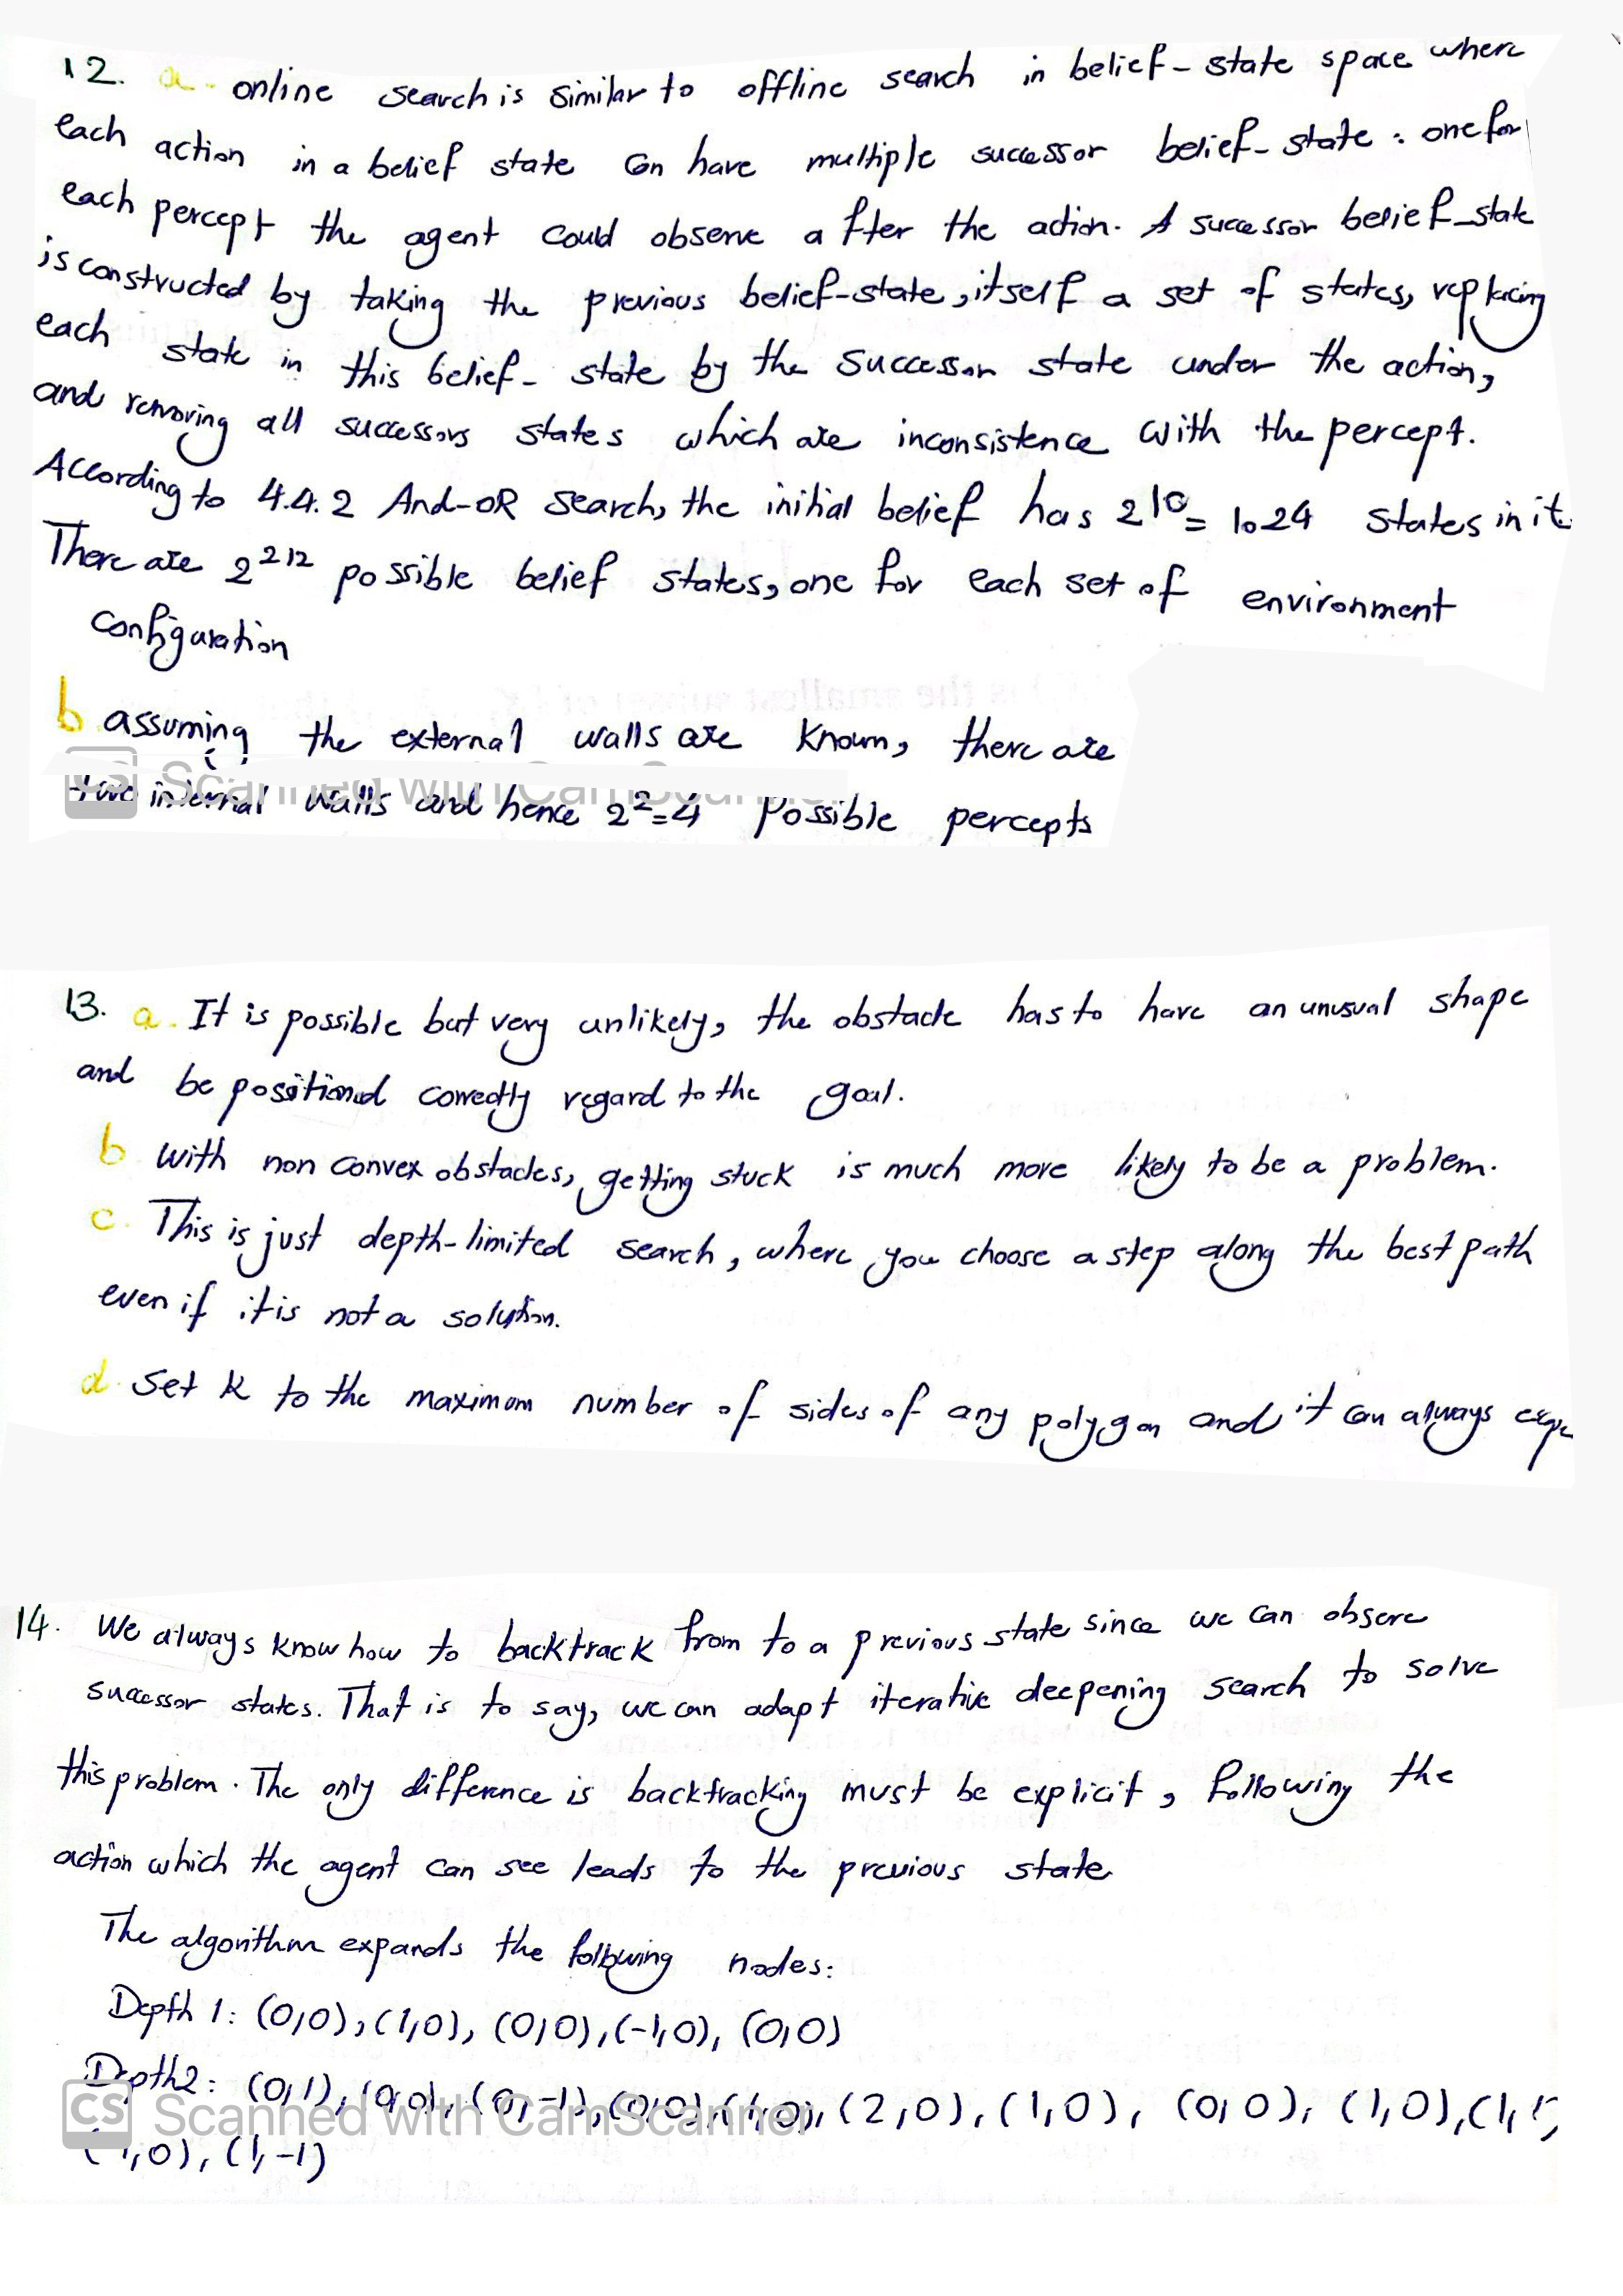 12. a. online search is similar to offline search in belief-state space where
each action in a belief state can have multiple successor belief-state : one for
each percept the agent could observe after the action. A successor belief-state
is constructed by taking the previous belief-state, itself a set of states, replacing
each state in this belief-state by the successor state under the action,
and removing all successors states which are inconsistence with the percept.
According to 4.4.2 And-OR search, the initial belief has 2^10 = 1024 states in it.
There are 2^2^12 possible belief states, one for each set of environment
configuration
b assuming the external walls are known, there are
two internal walls and hence 2^2=4 possible percepts
CS Scanned with CamScanner
13. a. It is possible but very unlikely, the obstacle has to have an unusual shape
and be positioned correctly regard to the goal.
b with non convex obstacles, getting stuck is much more likely to be a problem.
c. This is just depth-limited search, where you choose a step along the best path
even if it is not a solution.
d. Set k to the maximum number of sides of any polygon and it can always
14. We always know how to backtrack from to a previous state since we can obsere
successor states. That is to say, we can adapt iterative deepening search to solve
this problem. The only difference is backtracking must be explicit, following the
action which the agent can see leads to the previous state
The algorithm expands the following nodes:
Depth 1: (0,0), (1,0), (0,0), (-1,0), (0,0)
Depth2: (0,1), (0,0), (0,-1), (0,0), (1,0), (2,0), (1,0), (0,0), (1,0), (1,1),
(1,0), (1,-1)
CS Scanned with CamScanner